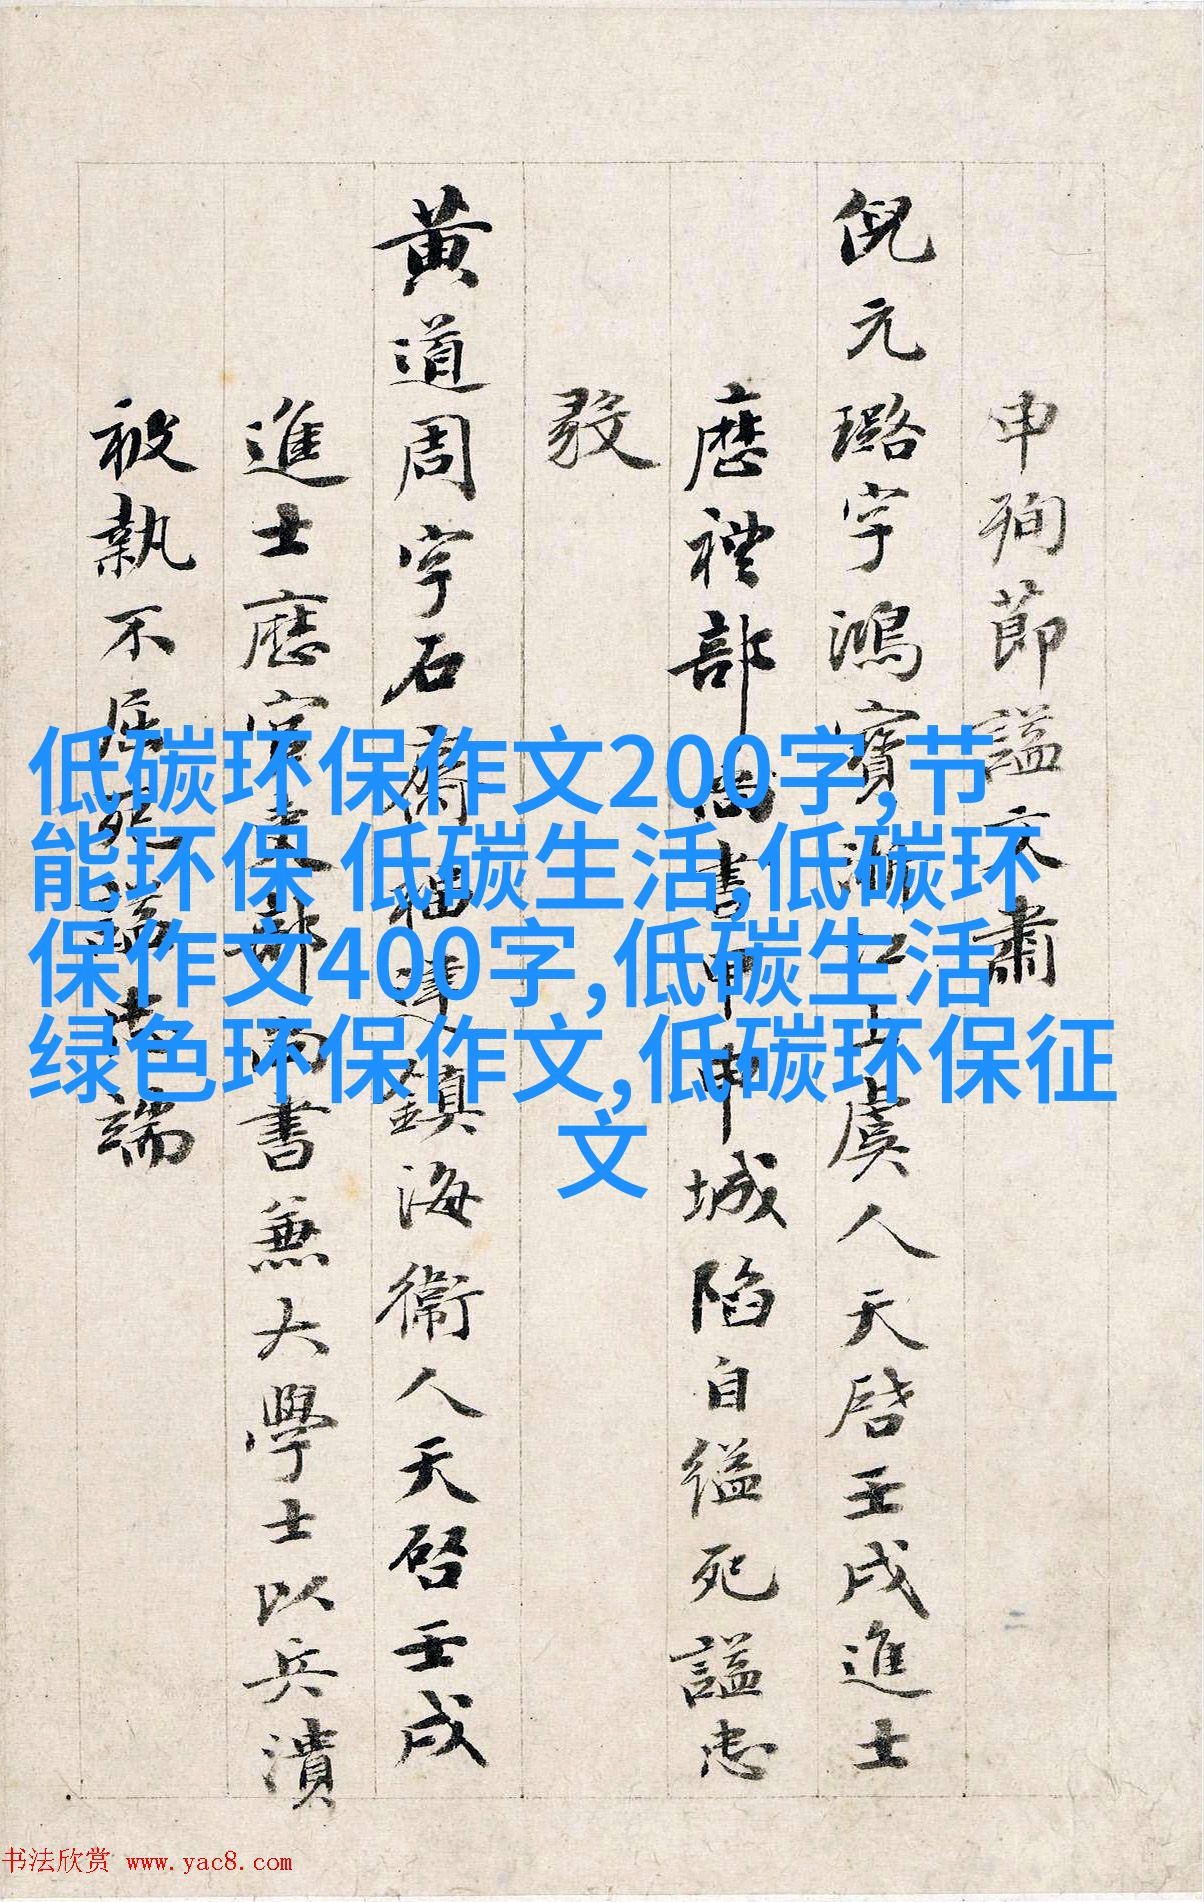 申殉節謚文肅
倪元璐字鴻寶浙江上虞人天啓壬戌進士
厯禮部尚書甲申城陷自縊死謚忠
黄道周字石齋福建鎮海衞人天啓壬戌
進士厯官吏部尚書兼大學士以兵潰
被執不屈死謚忠端
低碳环保作文200字,节
能环保 低碳生活,低碳环
保作文400字,低碳生活
绿色环保作文,低碳环保征
文
书法欣赏 www.yac8.com